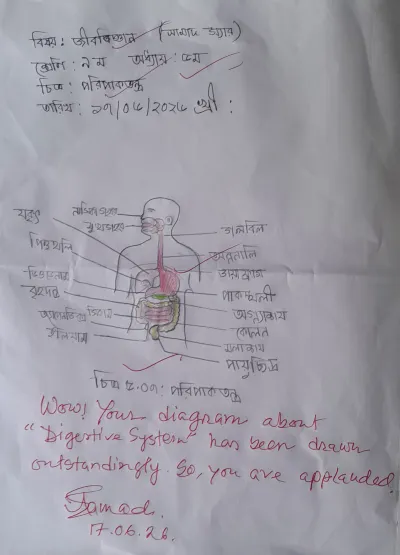 বিষয়: জীববিজ্ঞান (সামাদ স্যার)
শ্রেণি: ৯ম অধ্যায়: ৫ম
চিত্র: পরিপাকতন্ত্র
তারিখ:
নাসিকাগহ্বর
মুখগহ্বর
যকৃৎ
গলবিল
পিত্তথলি
অন্ননালি
ডায়াফ্রাম
পাকস্থলী
অগ্ন্যাশয়
কোলন
মলাশয়
পায়ুছিদ্র
চিত্র ৫.০৭: পরিপাকতন্ত্র
Wow! Your diagram about
"Digestive System" has been drawn
outstandingly. So, you are applauded.
Samad.
17.06.26.